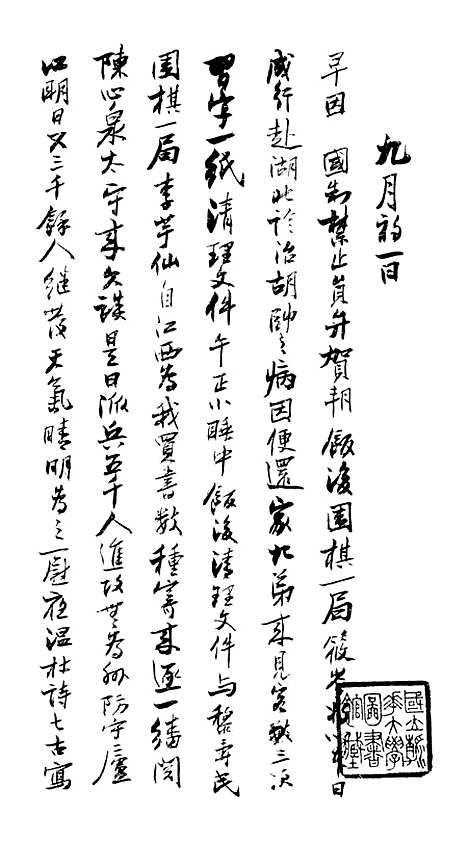 九月初一日
早因 國制禁止員弁賀朔飯後圍棋一局筱岑將以本日
成行赴湖北診治胡帥之病因便還家九弟來見客數三次
習字一紙清理文件午正小睡中飯後清理文件與黎壽民
圍棋一局李芋仙自江西為我買書數種寄來逐一繙閱
陳心泉太守來久談是日派兵五千人進攻無為州防守廬
江明日又三千餘人繼發天氣晴明為之一慰夜溫杜詩七古寫
國立
大學
圖書
館藏